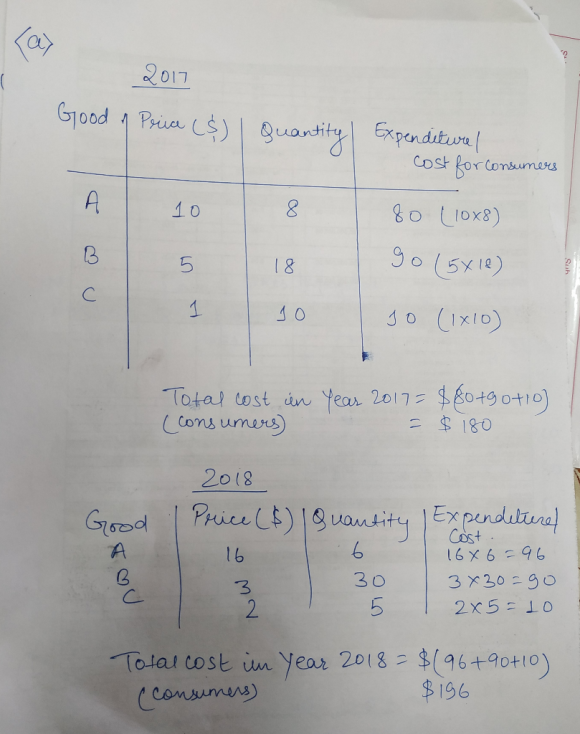 (a)
2017
Good Price ($) Quantity Expenditure/
Cost for consumers
A 10 8 80 (10x8)
B 5 18 90 (5x18)
C 1 10 10 (1x10)
Total cost in Year 2017 = $(80+90+10)
(consumers) = $ 180
2018
Good Price ($) Quantity Expenditure/
Cost.
A 16 6 16x6 = 96
B 3 30 3x30 = 90
C 2 5 2x5 = 10
Total cost in Year 2018 = $(96+90+10)
(consumers) $196